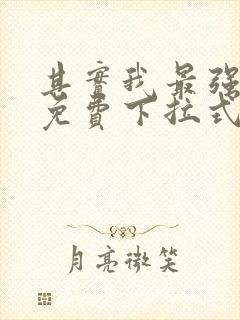 其實我最强
免費下拉式
月亮微笑